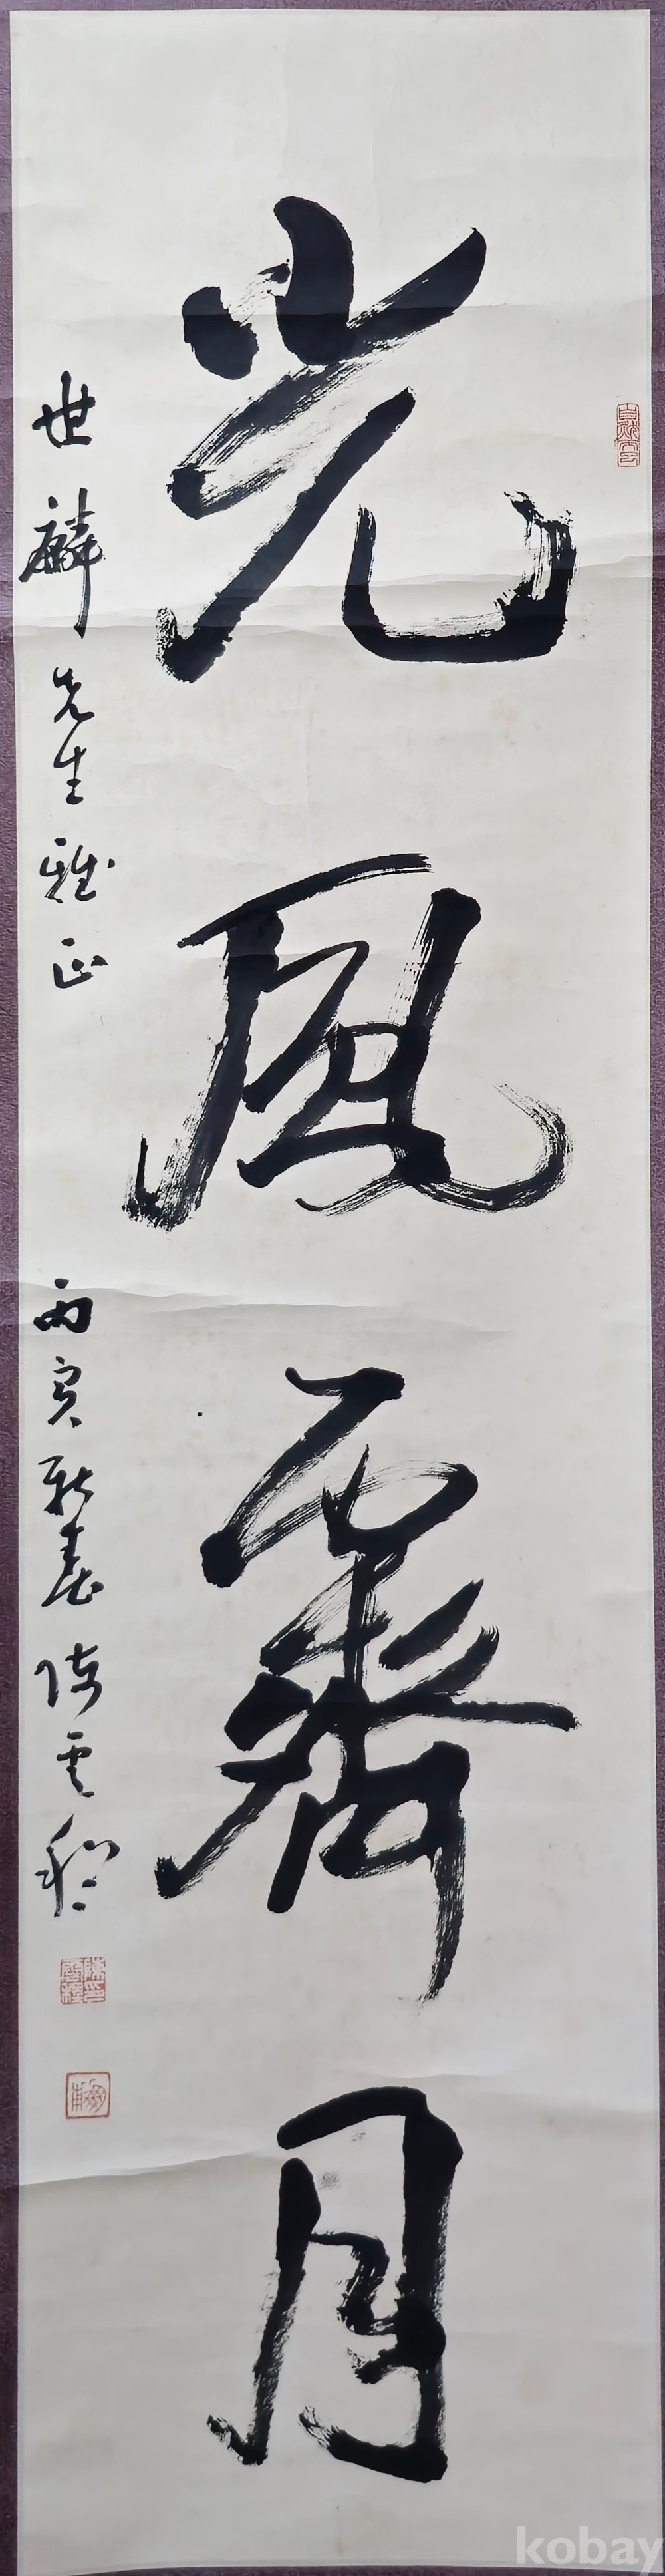 光風霽月
世麟先生雅正
丙寅新春陳雲程
陳雲程印
kobay